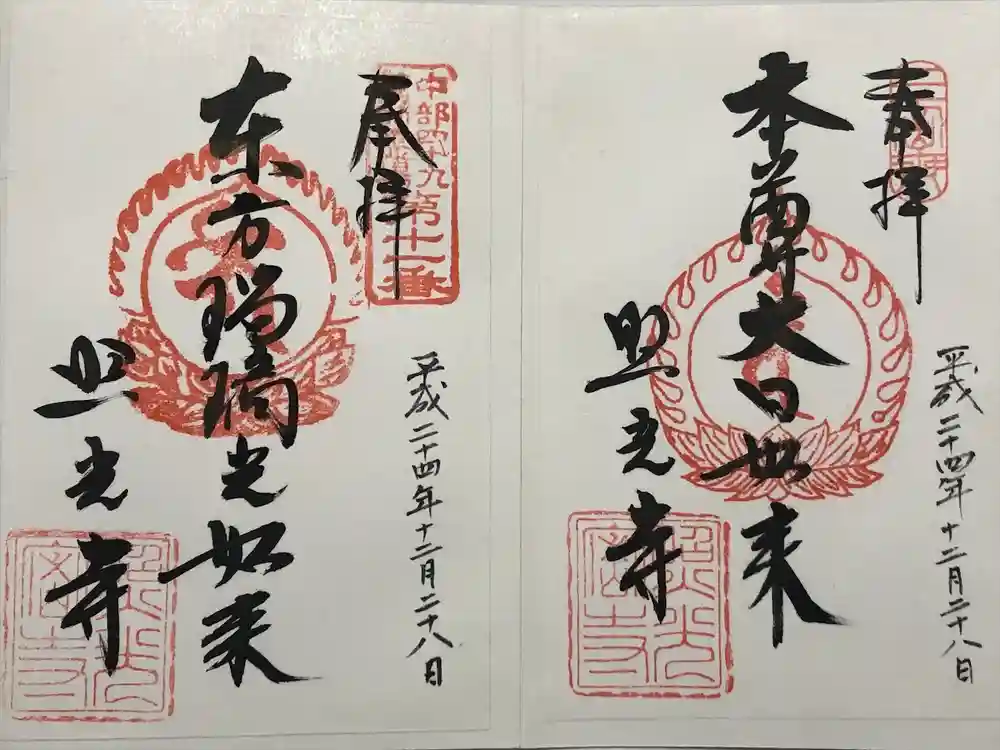 奉拝
本尊大日如来
照光寺
平成二十四年十二月二十八日
奉拝
中部四十九
第十一番
东方瑠璃光如来
照光寺
平成二十四年十二月二十八日